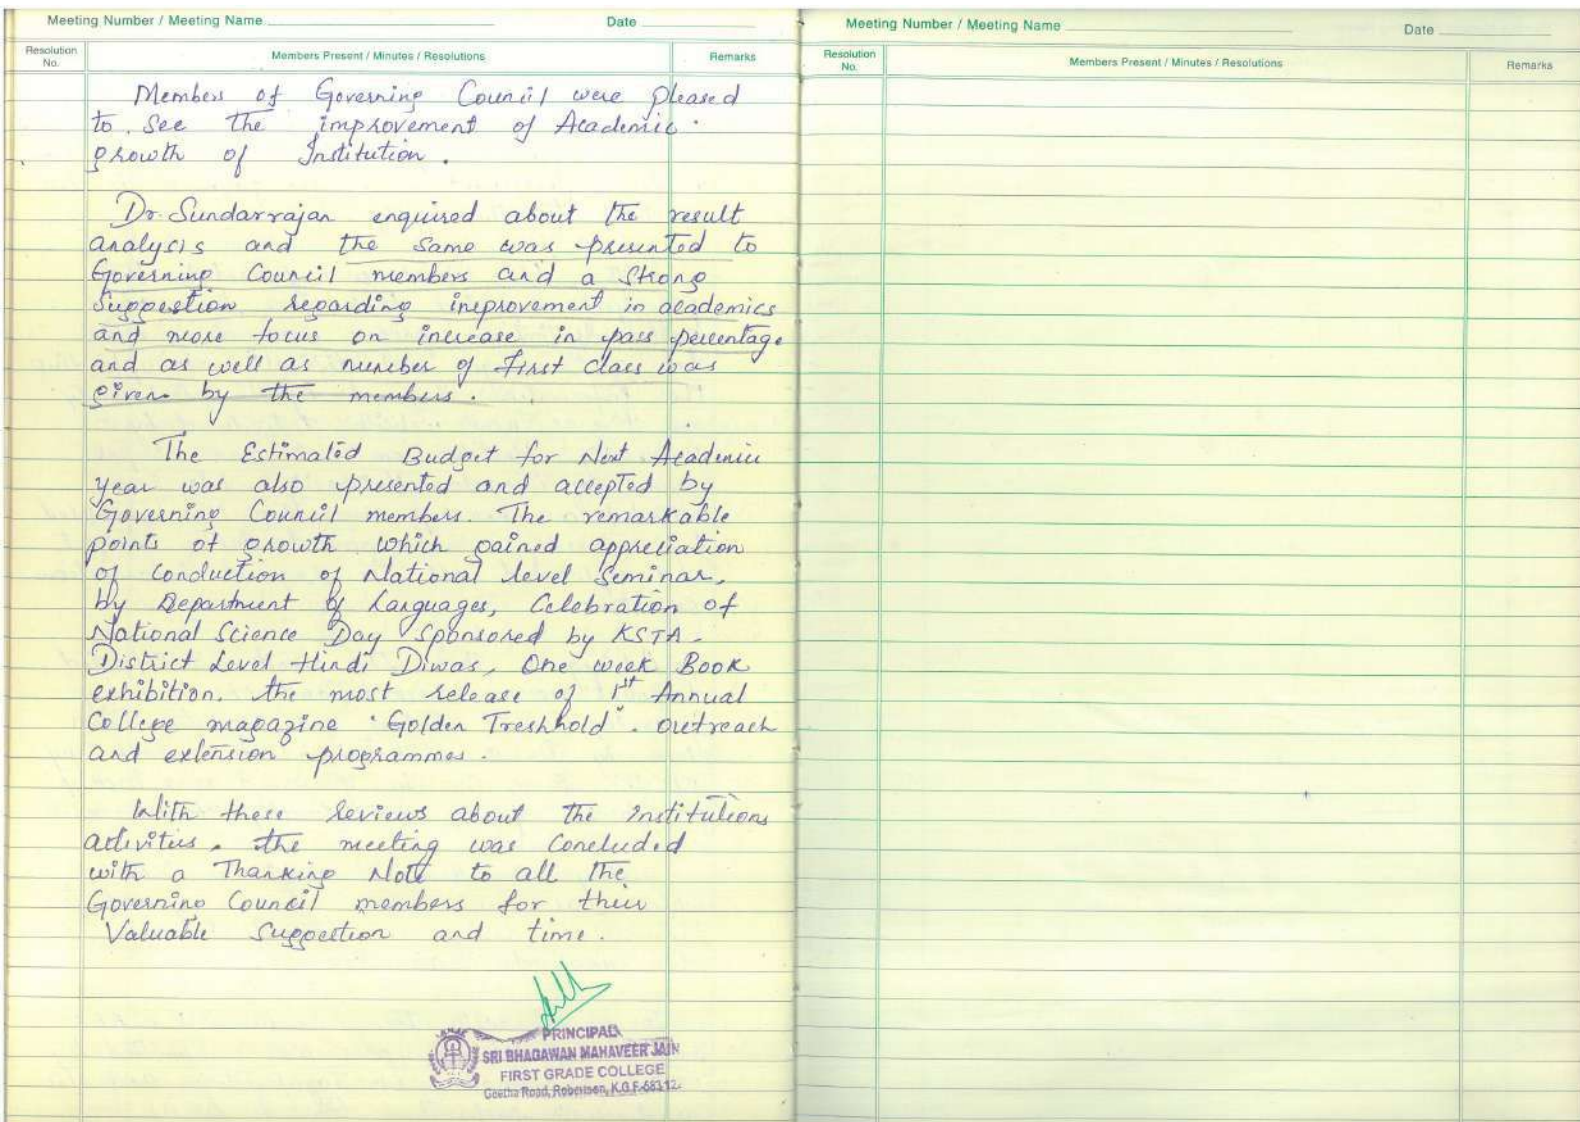 Meeting Number / Meeting Name Date
Resolution No. Members Present / Minutes / Resolutions Remarks
Members of Governing Council were pleased
to see the improvement of Academic
growth of Institution.
Dr. Sundarrajan enquired about the result
analysis and the same was presented to
Governing Council members and a strong
suggestion regarding improvement in academics
and more focus on increase in pass percentage
and as well as number of first class was
given by the members.
The Estimated Budget for Next Academic
year was also presented and accepted by
Governing Council members. The remarkable
points of growth which gained appreciation
of conduction of National level Seminar,
by Department of Languages, Celebration of
National Science Day Sponsored by KSTA.
District Level Hindi Diwas, One week Book
exhibition. the most release of 1st Annual
College magazine "Golden Treshhold". Outreach
and extension programmes.
With these reviews about the institutions
activities. the meeting was concluded
with a Thanking Note to all the
Governing Council members for their
Valuable Suggestion and time.
PRINCIPAL
SRI BHAGAWAN MAHAVEER JAIN
FIRST GRADE COLLEGE
Geetha Road, Robertson, K.G.F.
Meeting Number / Meeting Name Date
Resolution No. Members Present / Minutes / Resolutions Remarks